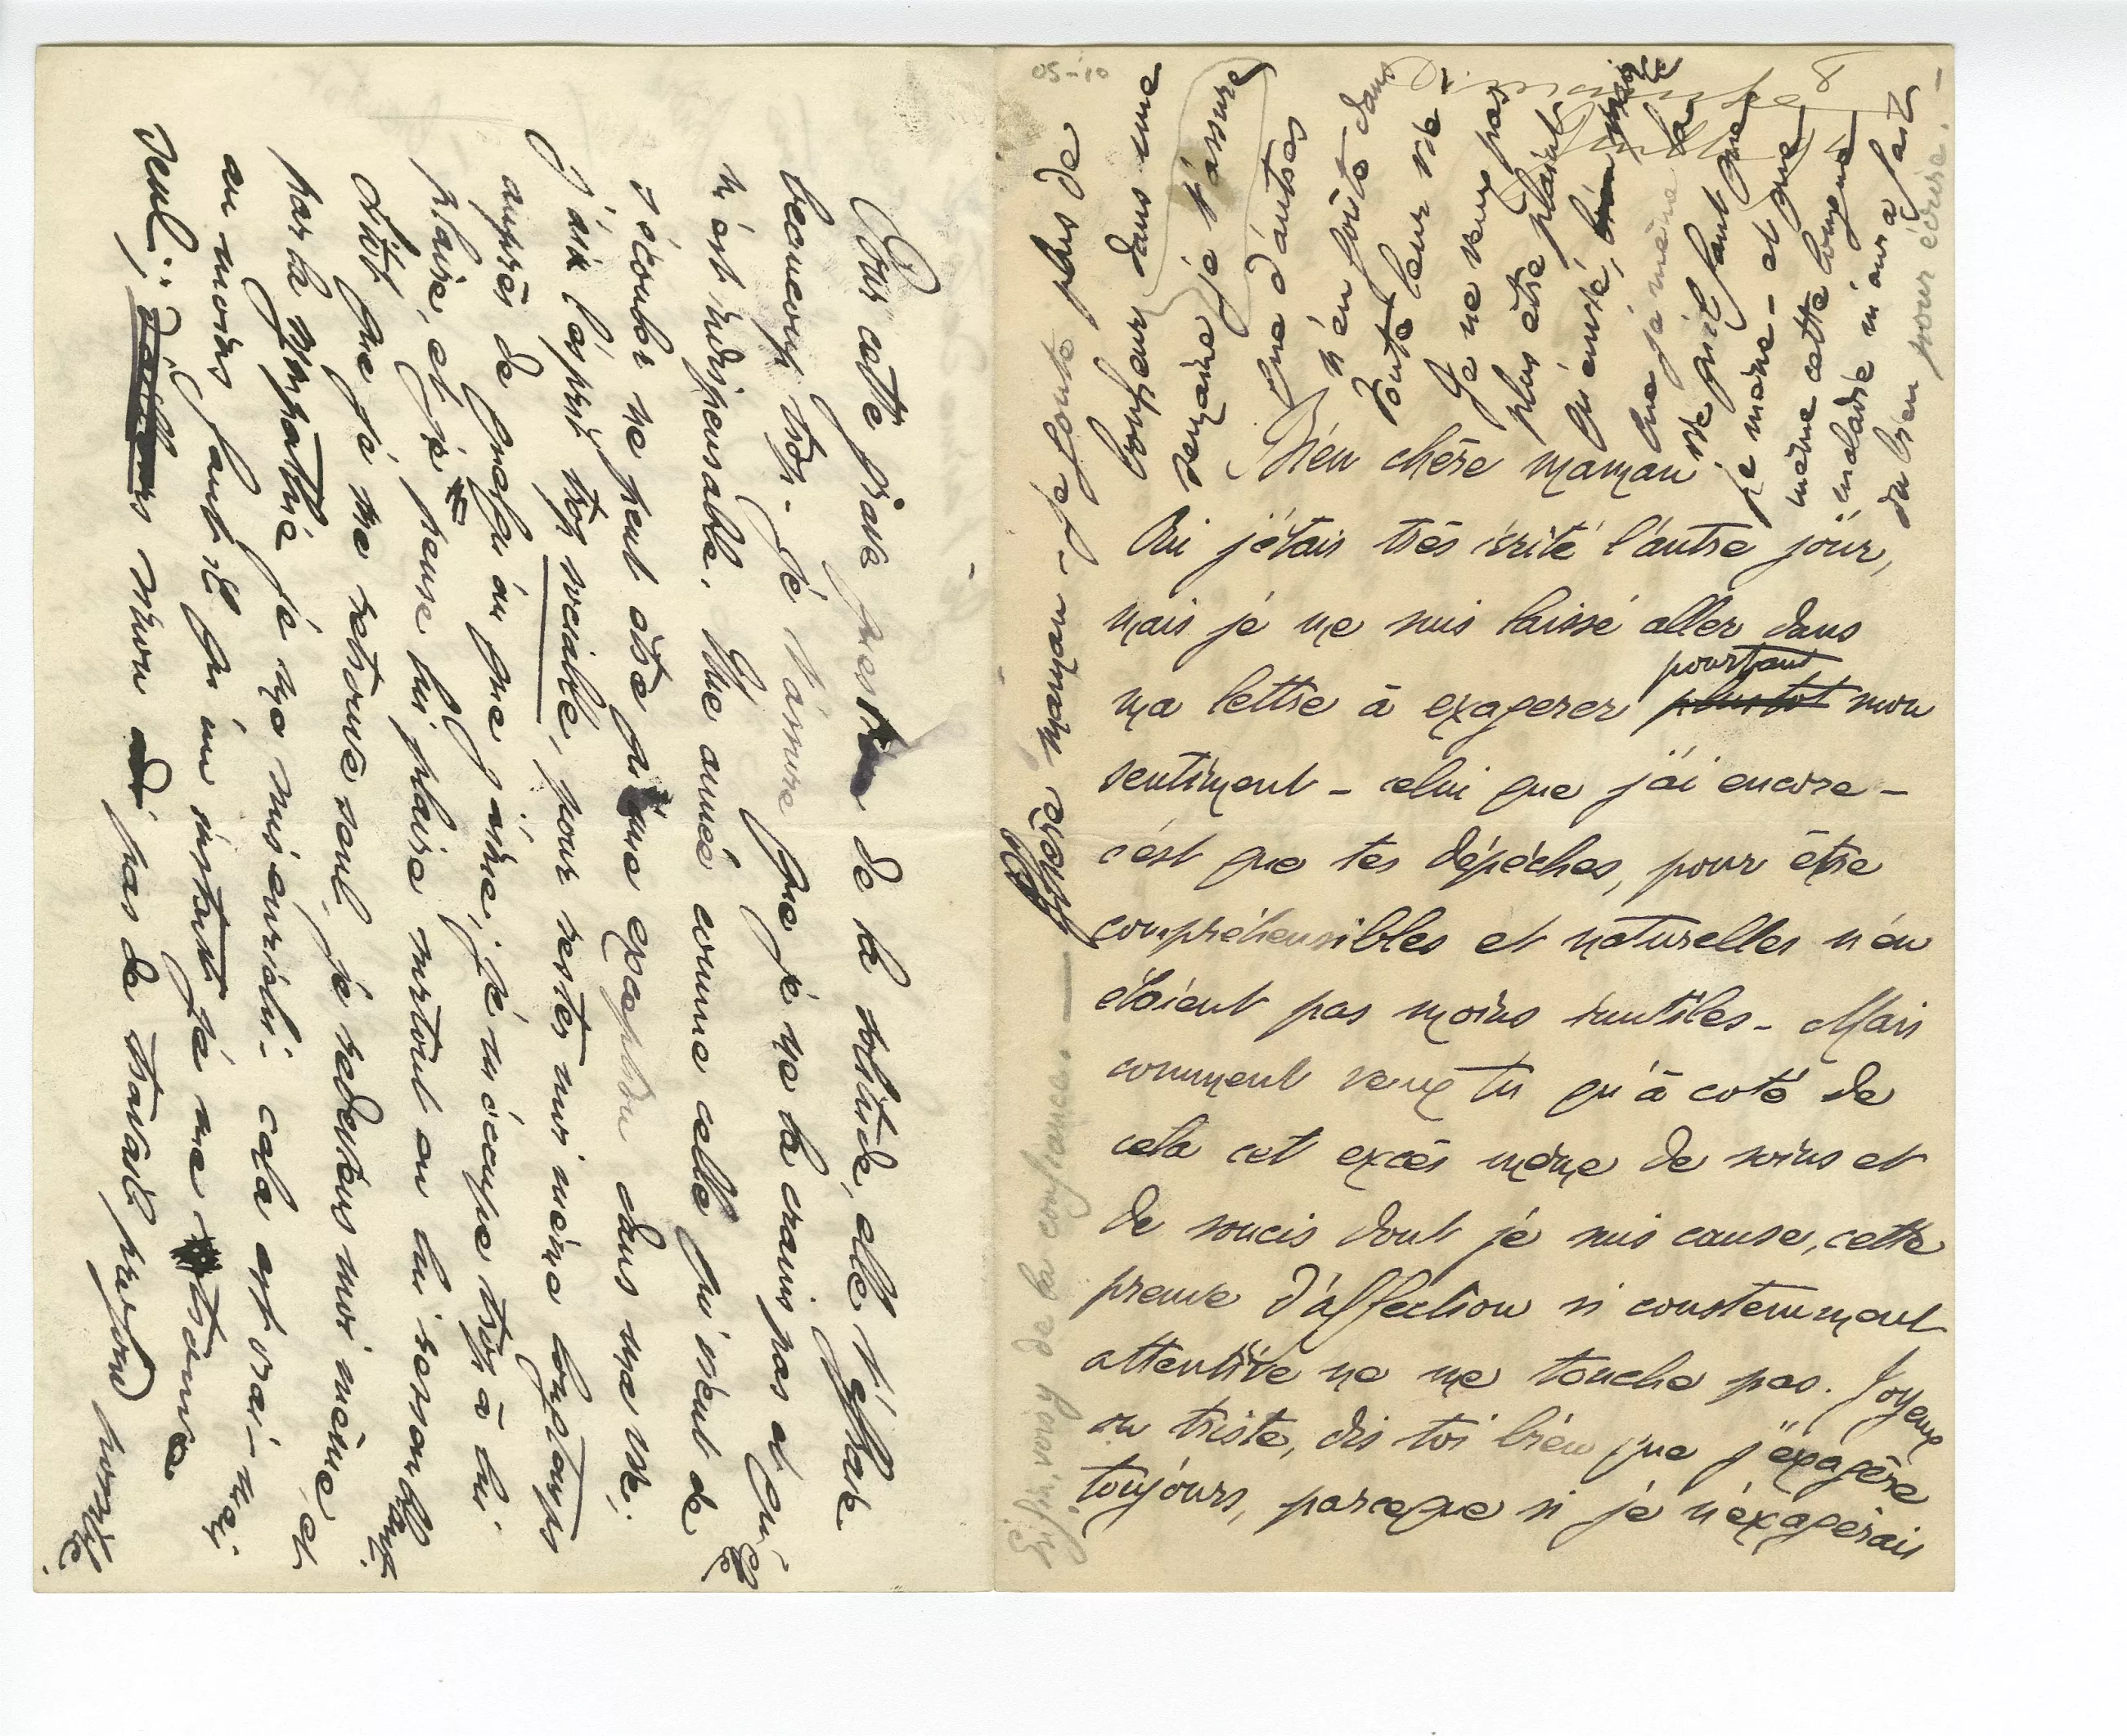 05-10
Bien chère maman
Oui j'étais très irrité l'autre jour,
mais je me suis laissé aller dans
ma lettre à exagerer pourtant mon
sentiment - celui que j'ai encore -
c'est que tes dépéches, pour être
compréhensibles et naturelles n'en
étaient pas moins inutiles - Mais
comment veux tu qu'à coté de
cela cet excès même de soins et
de soucis dont je suis cause, cette
preuve d'affection si constemment
attentive ne me touche pas. Joyeux
ou triste, dis toi bien que j'exagère
toujours, parceque si je n'exagérais
Enfin, vois y de la confiance. —
chère maman - Je goute plus de
bonheur dans une
semaine je t'assure
que d'autres
n'en goute dans
toute leur vie.
Je ne veux pas
plus être plaint
qu'envié,
que je mène la
vie qu'il faut que
je mène - et que
même cette longue
maladie m'aura fait
du bien pour écrire.
Pour cette grave question de la solitude, elle t'effraie
beaucoup trop. Je t'assure que je ne la crains pas et qu'elle
m'est indispensable. Une année comme celle qui vient de
s'écouler ne peut être qu'une exception dans ma vie.
J'ai l'esprit trop sociable, pour rester moi même longtemps
auprès de quelqu'un que j'aime; je m'occupe trop à lui
plaire, et je pense lui plaire surtout en lui ressemblant.
Sitôt que je me retrouve seul, je redeviens moi même, et
par la sympathie je me suis enrichi - cela est vrai - mais
au moins faut il qu'un instant je me trouve
seul; sinon pas de travail profond possible.